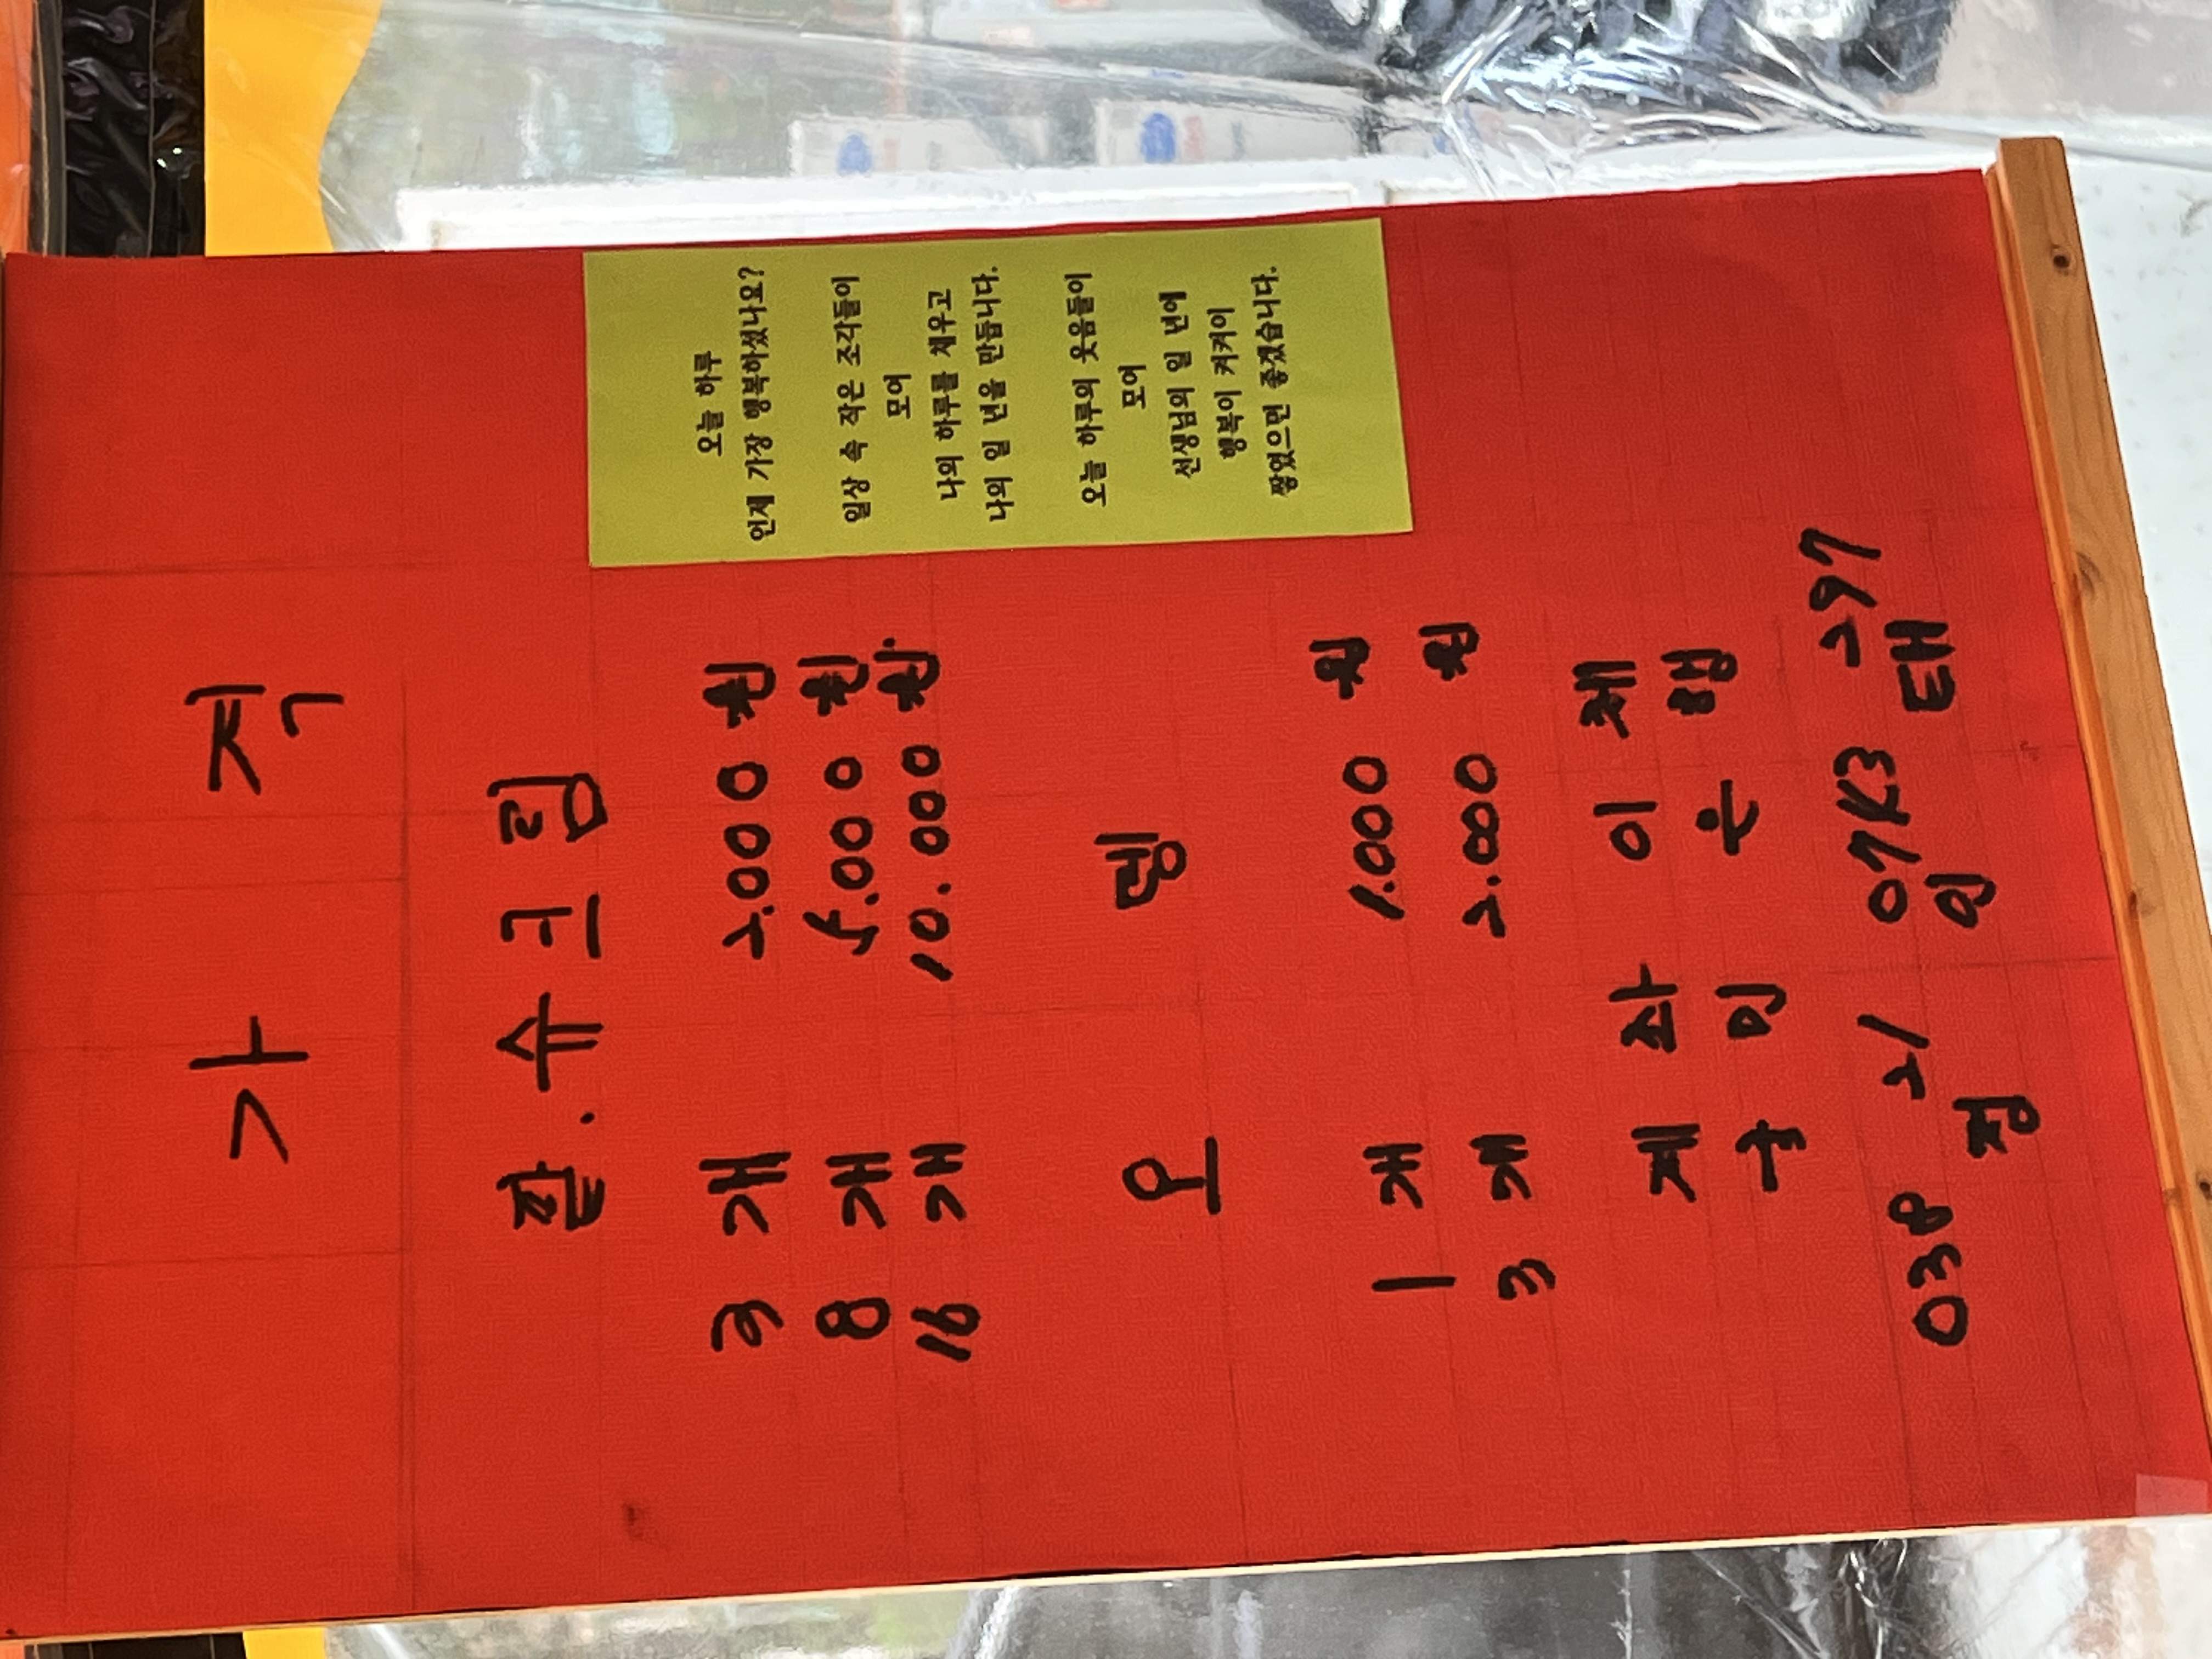 가 격
팥.슈크림
3개 2.000원
8개 5.000원
16개 10.000원
오 뎅
1개 1.000원
3개 2.000원
계 좌 이 체
국 민 은 행
038 21 0713 297
정 인 태
오늘 하루
언제 가장 행복하셨나요?
일상 속 작은 조각들이
모여
나의 하루를 채우고
나의 일 년을 만듭니다.
오늘 하루의 웃음들이
모여
선생님의 일 년에
행복이 켜켜이
쌓였으면 좋겠습니다.